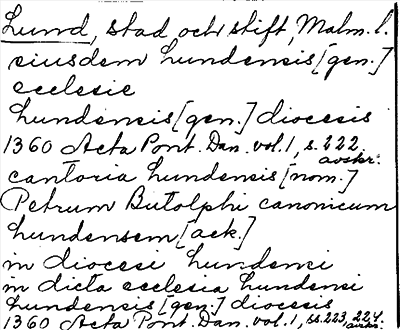 Lund, stad och stift, Malm. l.
eiusdem Lundensis [gen.]
ecclesie
Lundensis [gen.] diocesis
1360 Acta Pont. Dan. vol. 1, s. 222
avskr.
cantoria Lundensis [nom.]
Petrum Butolphi canonicum
Lundensem [ack.]
in diocesi Lundensi
in dicta ecclesia Lundensi
Lundensis [gen.] diocesis
1360 Acta Pont. Dan. vol. 1, ss. 223, 224.
avskr.